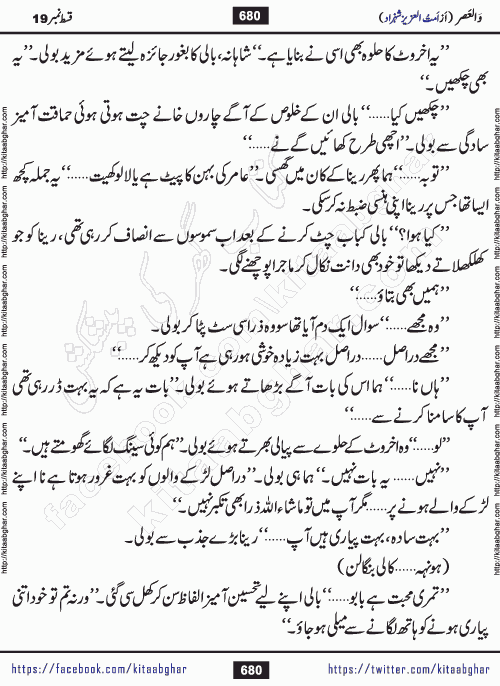 قسط نمبر 19
680
والعصر (از امت العزیز شہزاد)
’’یہ اخروٹ کا حلوہ بھی اسی نے بنایا ہے۔‘‘ شاہانہ، بالی کا بغور جائزہ لیتے ہوئے مزید بولی۔ ’’یہ
بھی چکھیں۔‘‘
’’چکھیں کیا……‘‘ بالی ان کے خلوص کے آگے چاروں خانے چت ہوتی ہوئی حماقت آمیز
سادگی سے بولی۔ ’’اچھی طرح کھائیں گے نے……‘‘
’’توبہ……‘‘ ہما پھر رینا کے کان میں گھسی۔ ’’عامر کی بہن کا پیٹ ہے یا لالوکھیت……‘‘ یہ جملہ کچھ
ایسا تھا جس پر رینا اپنی ہنسی ضبط نہ کر سکی۔
’’کیا ہوا؟‘‘ بالی کباب چٹ کرنے کے بعد اب سموسوں سے انصاف کر رہی تھی، رینا کو جو
کھلکھلاتے دیکھا تو خود بھی دانت نکال کر ماجرا پوچھنے لگی۔
’’ہمیں بھی بتاؤ……‘‘
’’وہ مجھے……‘‘ سوال ایک دم آیا تھا سو وہ ذرا سی سٹ پٹا کر بولی۔
’’مجھے دراصل…… دراصل بہت زیادہ خوشی ہو رہی ہے آپ کو دیکھ کر……‘‘
’’ہاں نا……‘‘ ہما اس کی بات آگے بڑھاتے ہوئے بولی۔ ’’بات یہ ہے کہ یہ بہت ڈر رہی تھی
آپ کا سامنا کرنے سے……‘‘
’’لو……‘‘ وہ اخروٹ کے حلوے سے پیالی بھرتے ہوئے بولی۔ ’’ہم کوئی سینگ لگائے گھومتے ہیں۔‘‘
’’نہیں…… یہ بات نہیں۔‘‘ ہما ہی بولی۔ ’’دراصل لڑکے والوں کو بہت غرور ہوتا ہے نا اپنے
لڑکے والے ہونے پر…… مگر آپ میں تو ماشاء اللہ ذرا بھی تکبر نہیں۔‘‘
’’بہت سادہ، بہت پیاری ہیں آپ……‘‘ رینا بڑے جذب سے بولی۔
(ہونہہ…… کالی بنگالن)
’’تمری محبت ہے بابو……‘‘ بالی اپنے لیے تحسین آمیز الفاظ سن کر کھل سی گئی۔ ’’ورنہ تم تو خود اتنی
پیاری ہونے کو ہاتھ لگانے سے میلی ہو جاؤ۔‘‘
https://facebook.com/kitaabghar
680
https://twitter.com/kitaabghar
http://kitaabghar.com